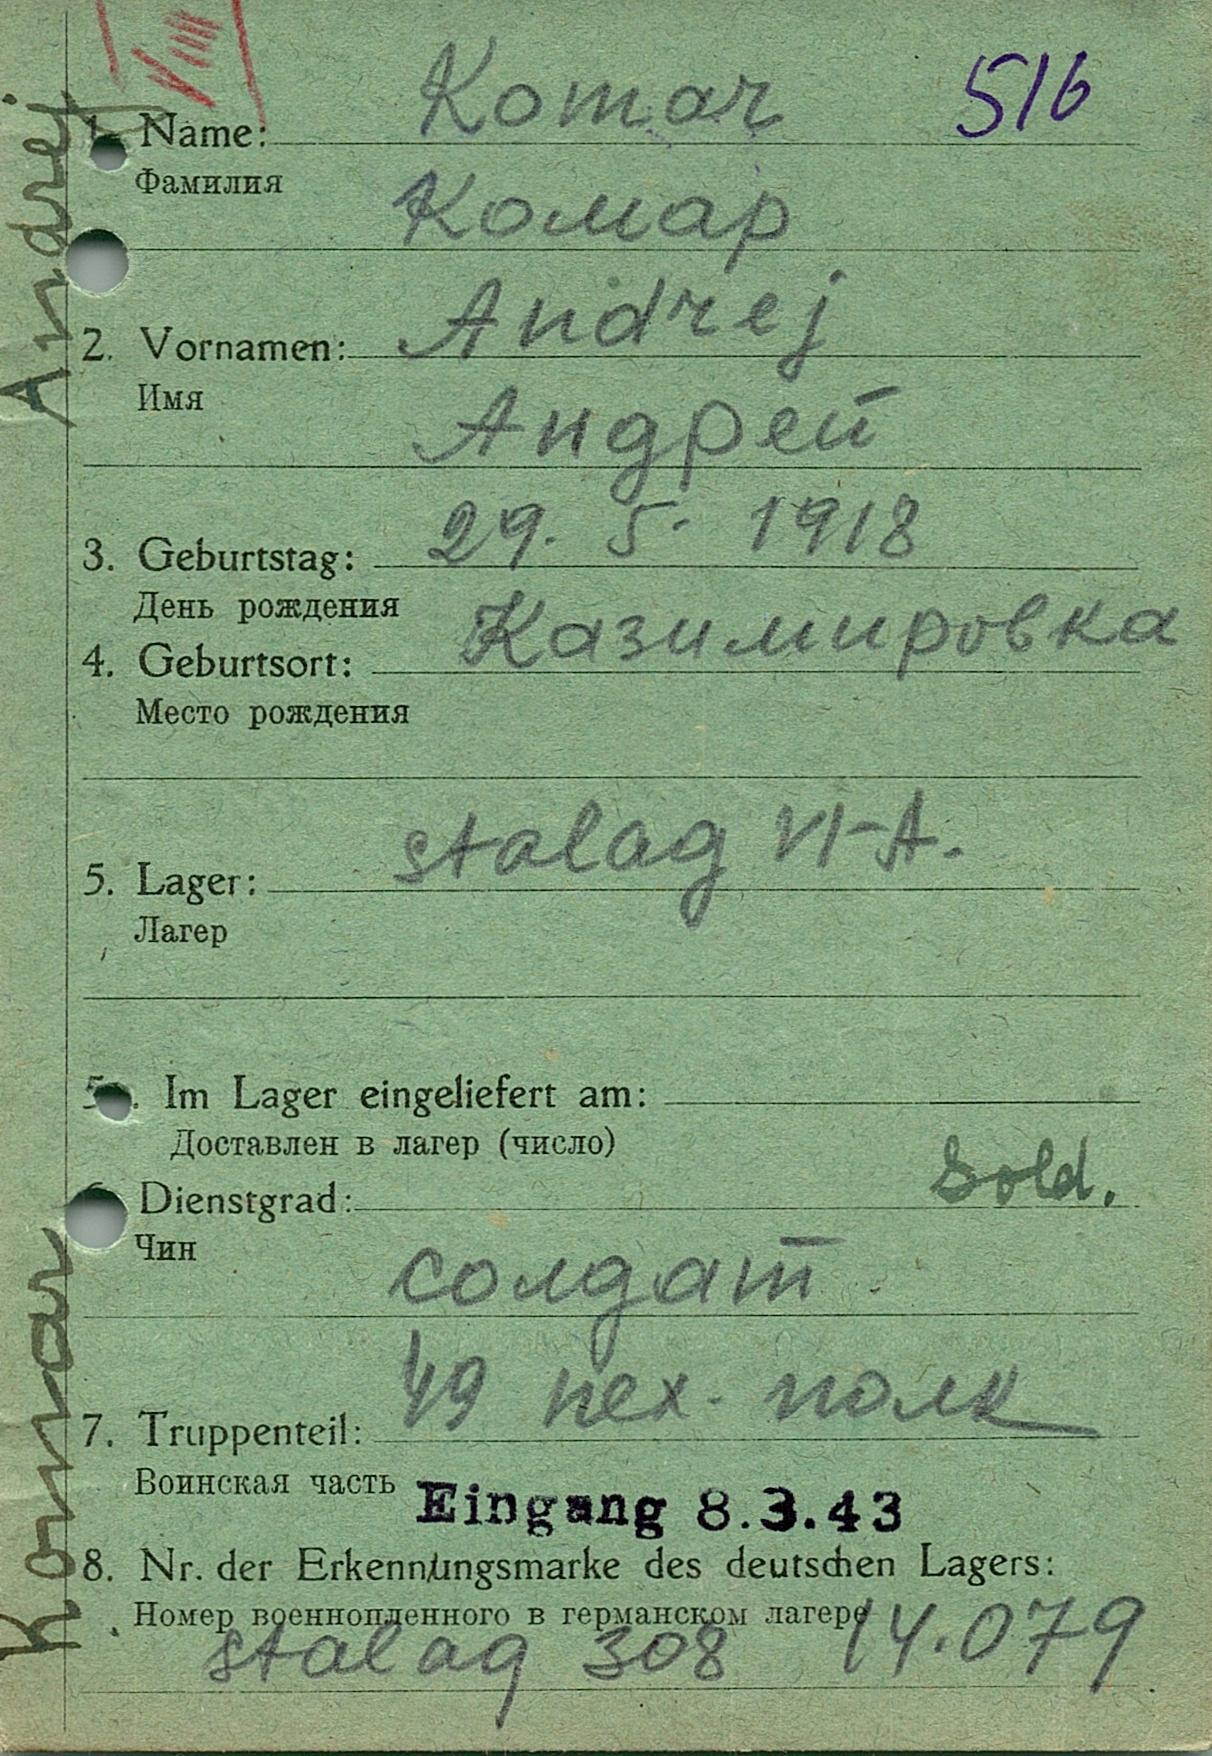 VIII
Komar
516
1. Name:
Фамилия
Комар
Andrej
2. Vornamen:
Имя
Андрей
29. 5. 1918
3. Geburtstag:
День рождения
Казимировка
4. Geburtsort:
Место рождения
stalag VI-A.
5. Lager:
Лагер
Im Lager eingeliefert am:
Доставлен в лагер (число)
Sold.
Dienstgrad:
Чин
солдат
49 пех. полк
7. Truppenteil:
Воинская часть
Eingang 8.3.43
8. Nr. der Erkennungsmarke des deutschen Lagers:
Номер военнопленного в германском лагере
stalag 308 14.079
Komar Andrej